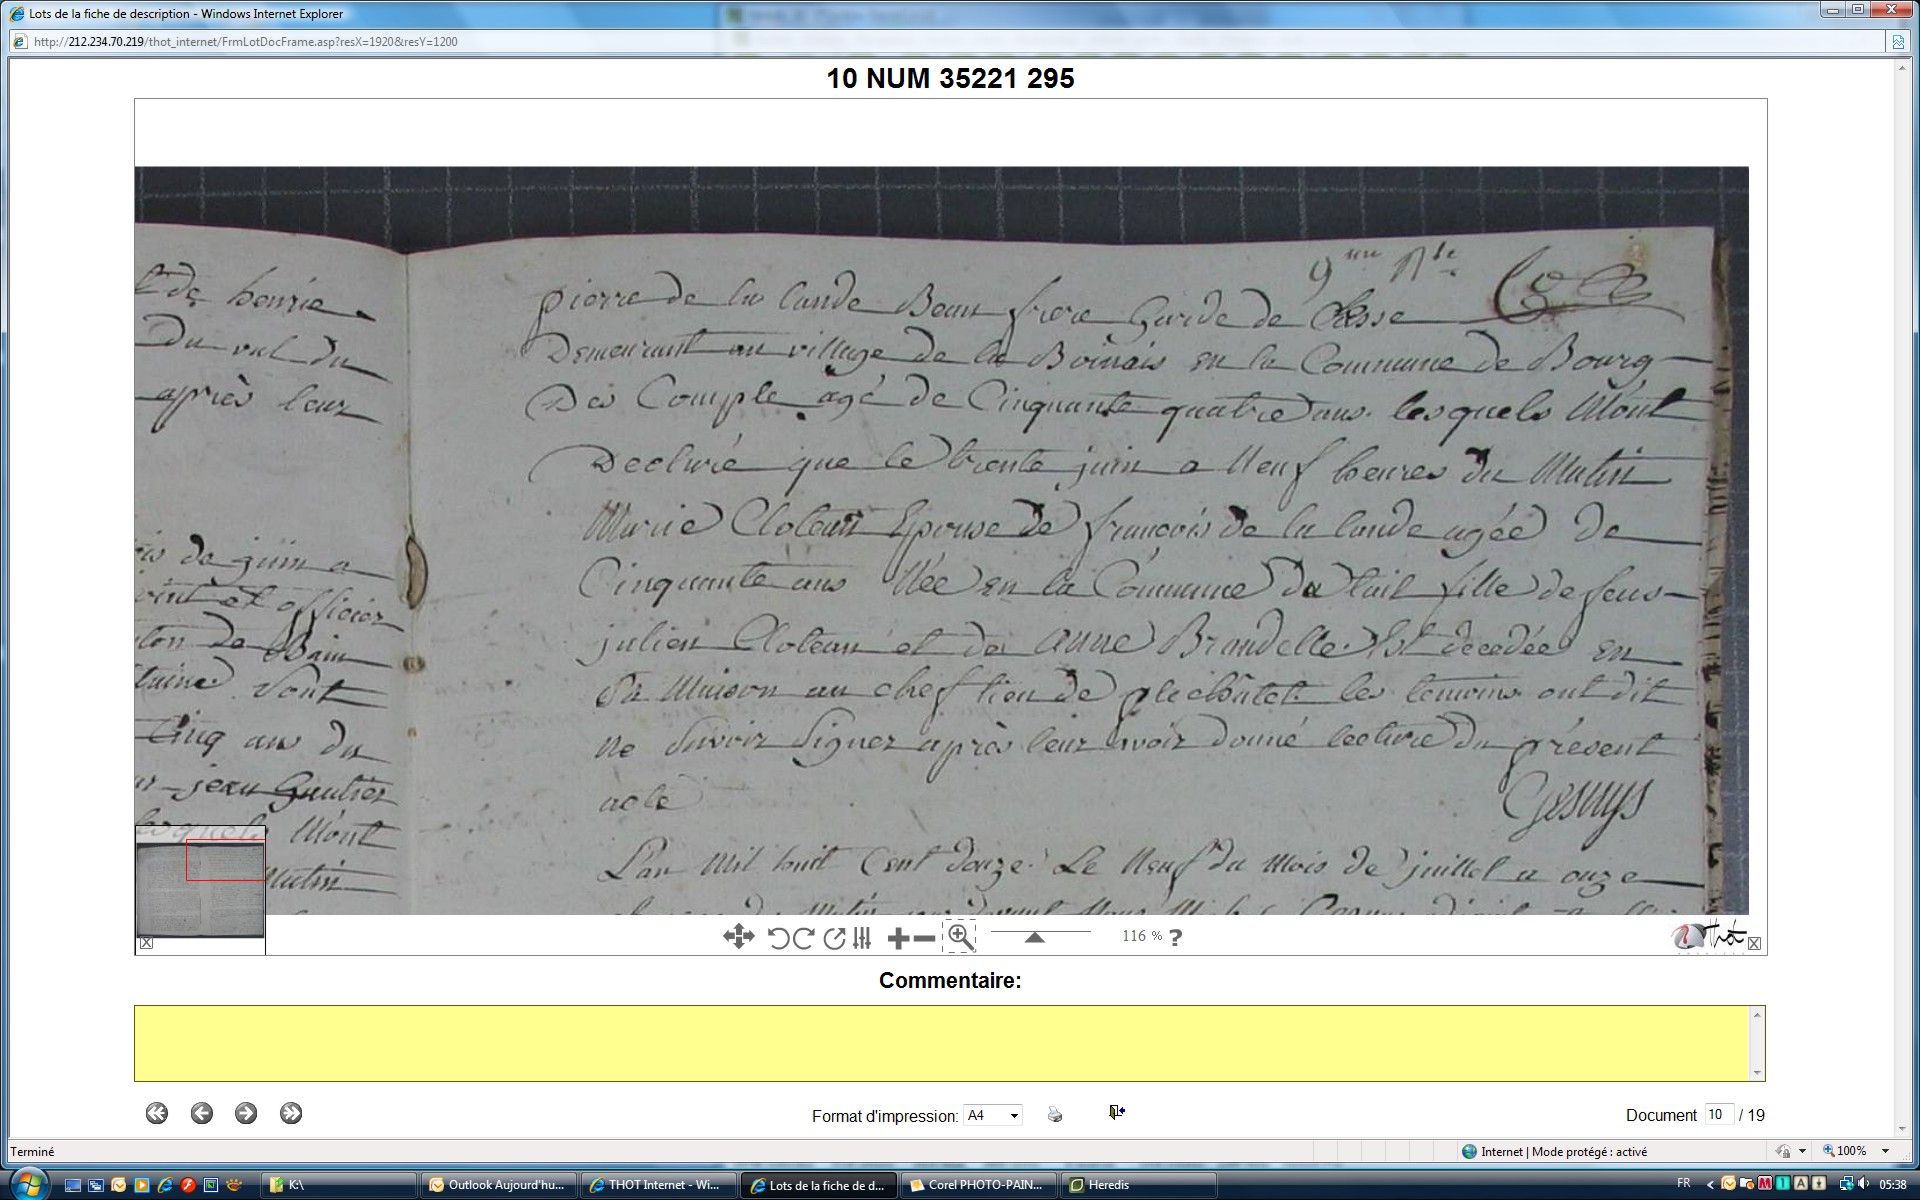 Lots de la fiche de description - Windows Internet Explorer
http://212.234.70.219/thot_internet/FrmLotDocFrame.asp?resX=1920&resY=1200
10 NUM 35221 295
9
de henrie
Du val du
après leur
de juin a
et officier
de Bain
vont
Cinq ans du
jean Gautier
lesquels Mont
Matin
pierre de la lande Beau frere Garde de Chasse
Demeurant au village de la Boinais en la Commune de Bourg
Des Comple agé de Cinquante quatre ans lesquels Mont
Declaré que le trente juin a Neuf heures du Matin
Marie Cloteau Epouse de françois de la lande agée de
Cinquante ans Née en la Commune du tait fille de feus
julien Cloteau et de anne Brandelle Est decedée en
Sa Maison au chef lieu de plechâtet les temoins ont dit
ne Savoir Signer après leur avoir donné lecture du présent
acte
Gesuys
L'an Mil huit Cent douze Le Neuf du Mois de juillet a onze
116 % ?
Thot
Commentaire:
Format d'impression: A4
Document 10 / 19
Terminé
Internet | Mode protégé : activé
100%
K:\
Outlook Aujourd'hu...
THOT Internet - Wi...
Lots de la fiche de d...
Corel PHOTO-PAIN...
Heredis
FR
05:38